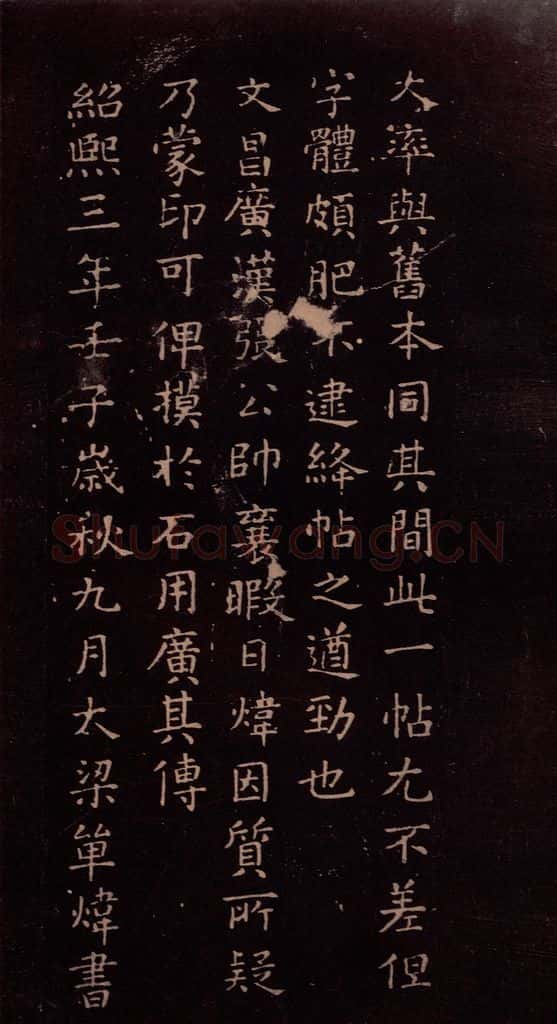 大率與舊本同其間此一帖尤不差但
字體頗肥不逮絳帖之遒勁也
文昌廣漢張公帥襄暇日煒因質所疑
乃蒙印可俾摸於石用廣其傳
紹熙三年壬子歲秋九月大梁單煒書
Shufawang.CN